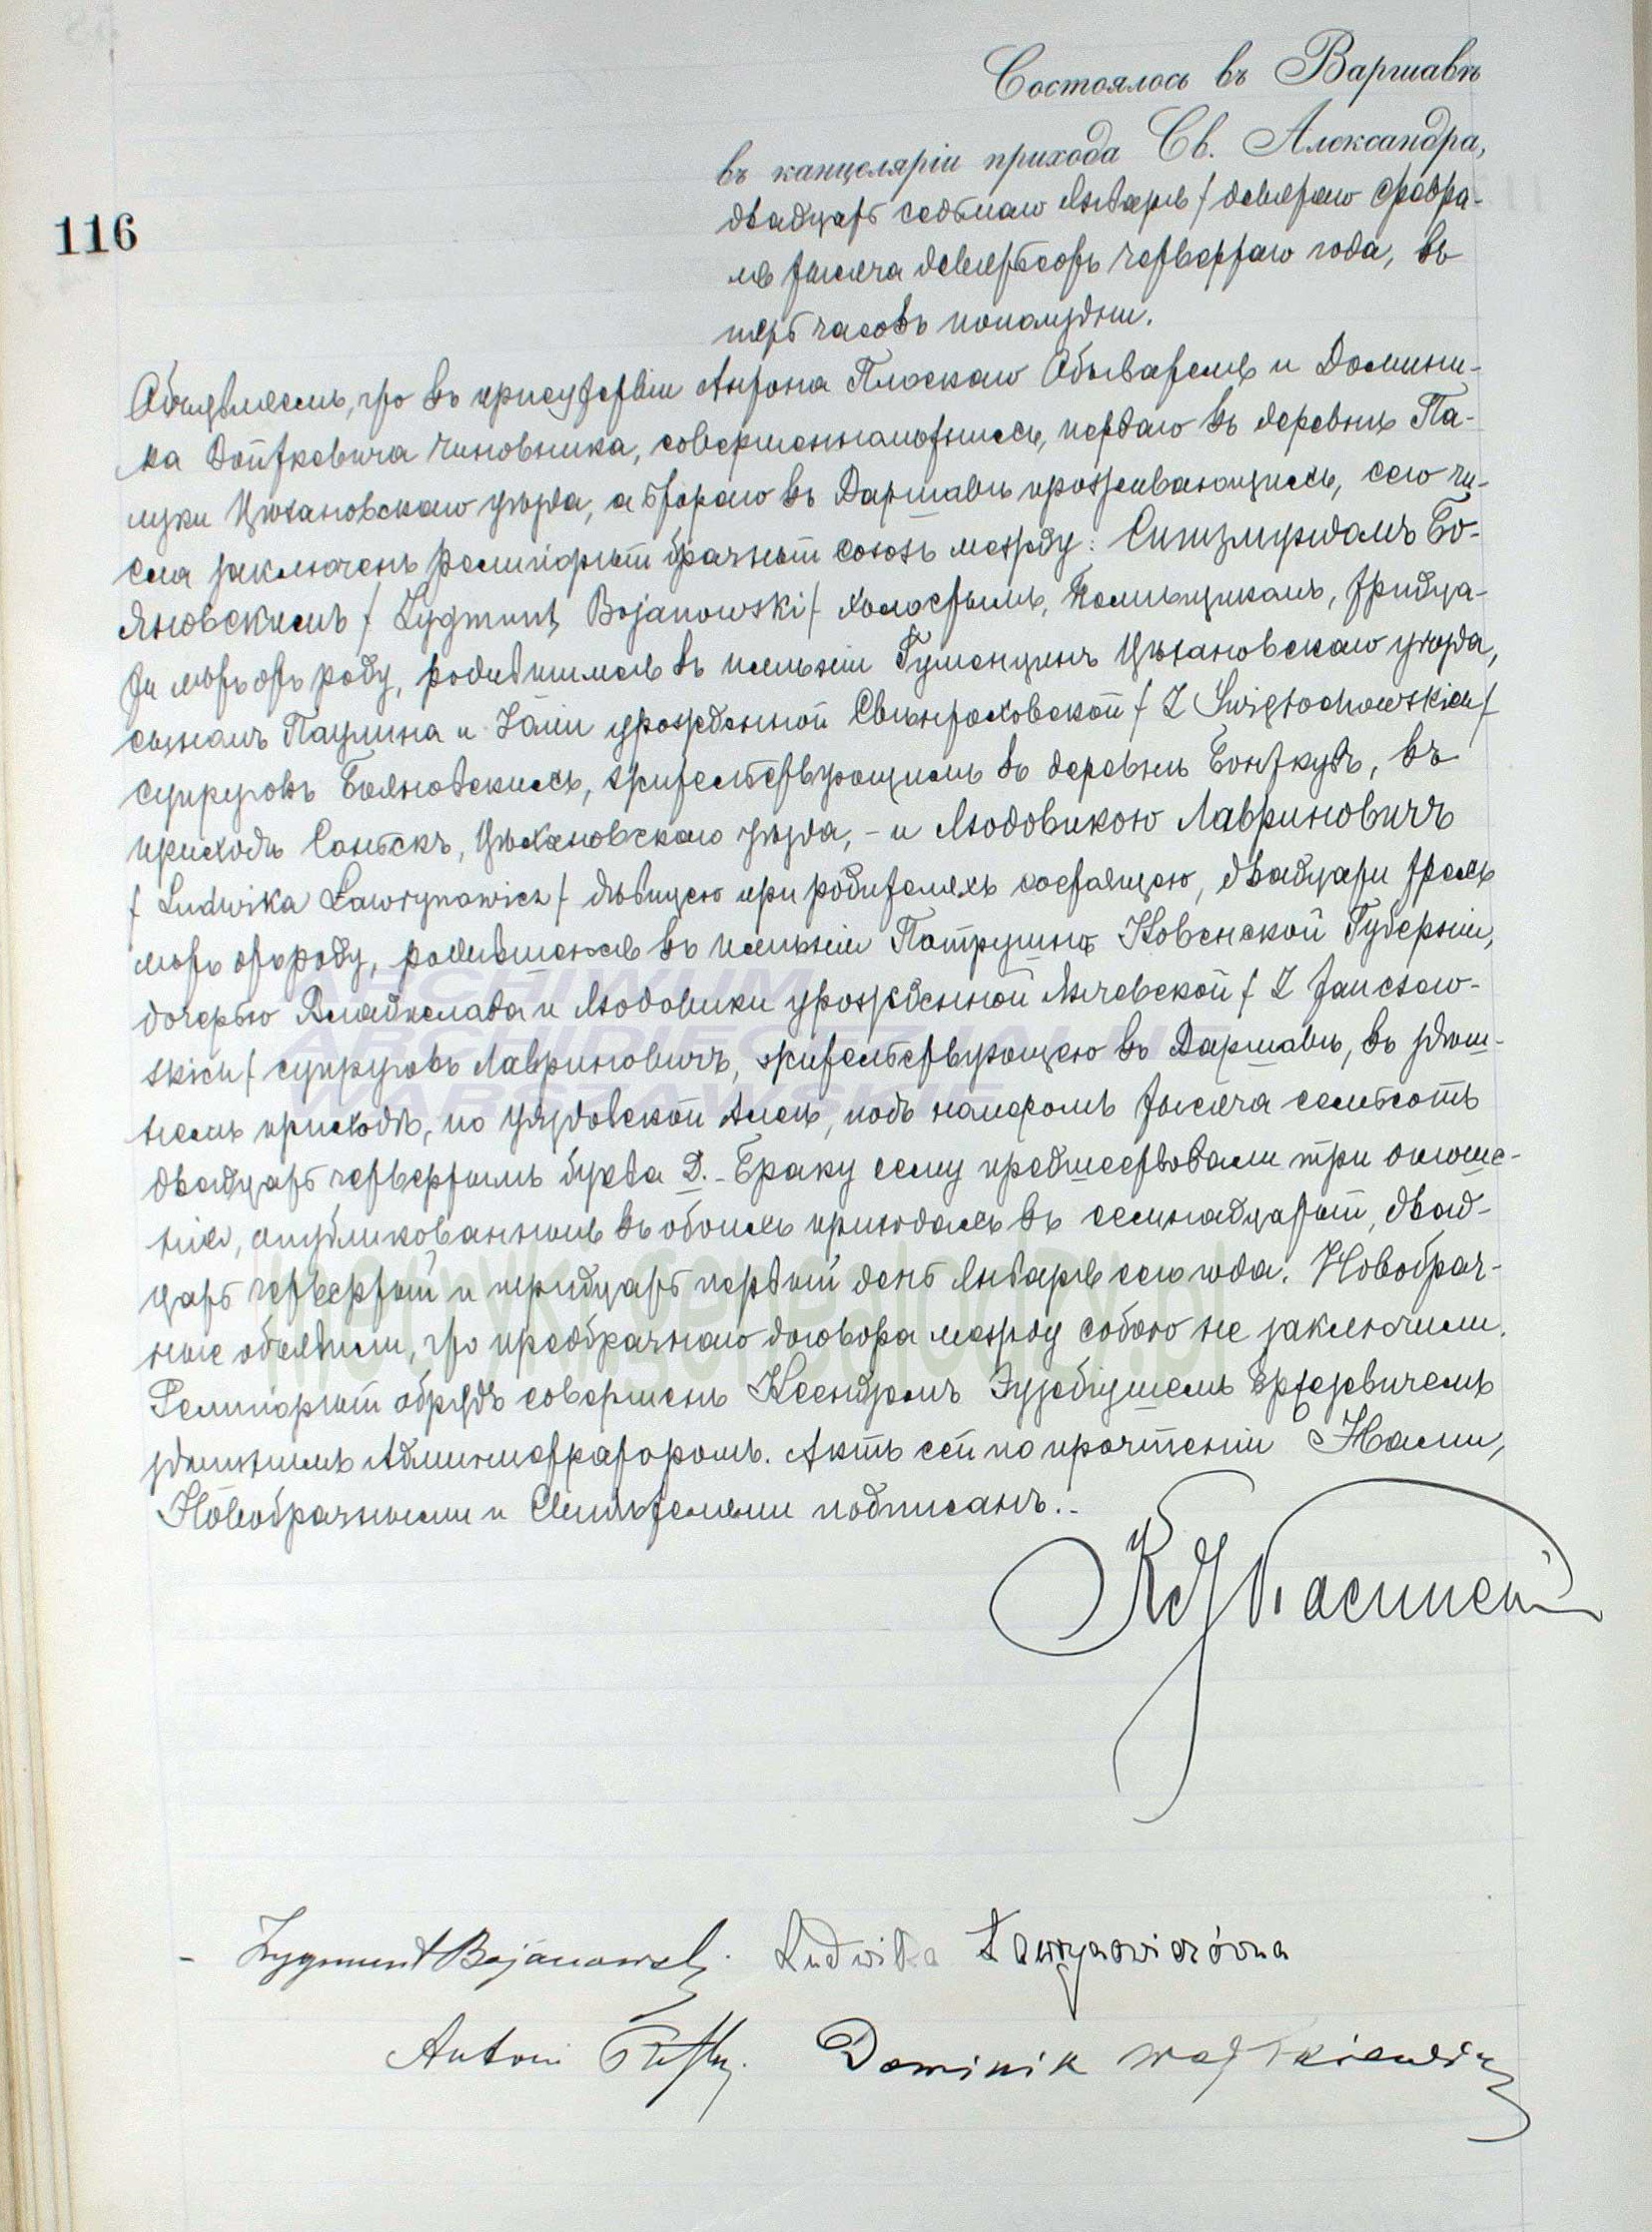 Состоялось въ Варшавѣ
въ канцеляріи прихода Св. Александра,
116
двадцать седьмаго Января / девятаго Февра-
ля тысяча девятьсотъ четвертаго года, въ
пять часовъ пополудни.
Объявляемъ, что въ присутствіи Антона Плоскаго Обывателя и Домини-
ка Войткевича чиновника, совершеннолѣтнихъ, перваго въ деревнѣ Па-
луки Цѣхановскаго уѣзда, а втораго въ Варшавѣ проживающихъ, сего чи-
сла заключенъ религіозный брачный союзъ между: Сигизмундомъ Бо-
яновскимъ / Zygmunt Bojanowski / холостымъ, Помѣщикомъ, тридца-
ти лѣтъ отъ роду, родившимся въ имѣніи Цѣхановскаго уѣзда,
сыномъ Паулина и Зофіи урожденной Свѣнтоховской / Z Swiętochowskich /
супруговъ Бояновскихъ, жительствующимъ въ деревнѣ Бонткувъ, въ
приходѣ Сонскъ, Цѣхановскаго уѣзда, - и Людовикою Лавриновичъ
/ Ludwika Ławrynowicz / дѣвицею при родителяхъ состоящею, двадцати трехъ
лѣтъ отъ роду, родившеюся въ имѣніи Ковенской Губерніи,
дочерью Владислава и Людовики урожденной Янчевской / Z Janczew-
skich / супруговъ Лавриновичъ, жительствующею въ Варшавѣ, въ здѣш-
немъ приходѣ, по Уяздовской Аллеѣ, подъ номеромъ тысяча семьсотъ
двадцать четвертымъ буква D. - Браку сему предшествовали три оглаше-
нія, опубликованныя въ обоихъ приходахъ въ семнадцатый, двад-
цать четвертый и тридцать первый день Января сего года. Новобрач-
ные объявили, что предбрачнаго договора между собою не заключили.
Религіозный обрядъ совершенъ Ксендзомъ
здѣшнимъ Администраторомъ. Актъ сей по прочтеніи Нами,
Новобрачными и Свидѣтелями подписанъ. -
Zygmunt Bojanowski. Ludwika Ławrynowiczówna
Antoni Dominik Wojtkiewicz
ARCHIWUM
ARCHIDIECEZJALNE
WARSZAWSKIE
metryki.genealodzy.pl